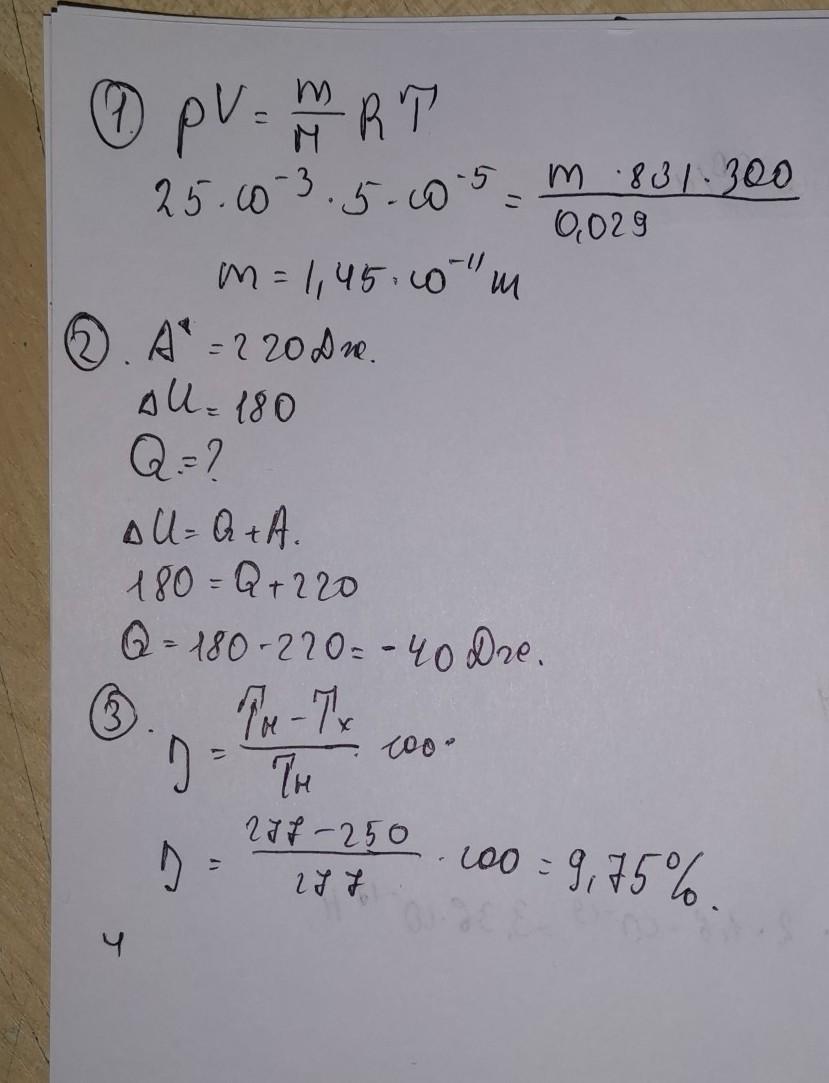 1. pV = m/M RT
25 · 10⁻³ · 5 · 10⁻⁵ = m · 831 · 300 / 0,029
m = 1,45 · 10⁻¹¹ т
2. A' = 220 Дж.
ΔU = 180
Q = ?
ΔU = Q + A.
180 = Q + 220
Q = 180 - 220 = - 40 Дж.
3. η = Tн - Tх / Tн · 100
η = 277 - 250 / 277 · 100 = 9,75%.
4